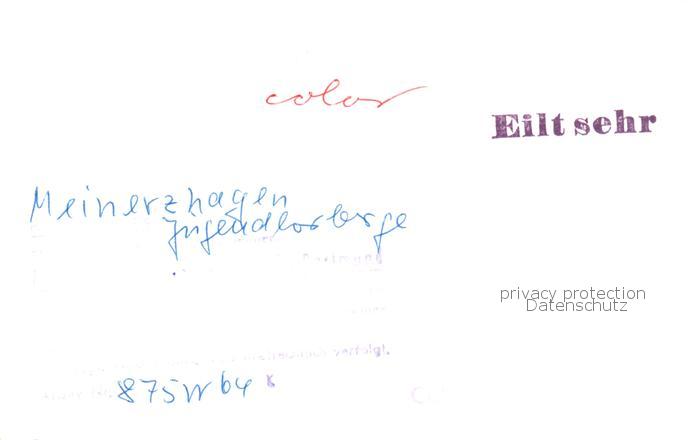 color
Eilt sehr
Meinerzhagen
Jugendherberge
Dortmund
privacy protection
Datenschutz
verfolgt.
875W64 K